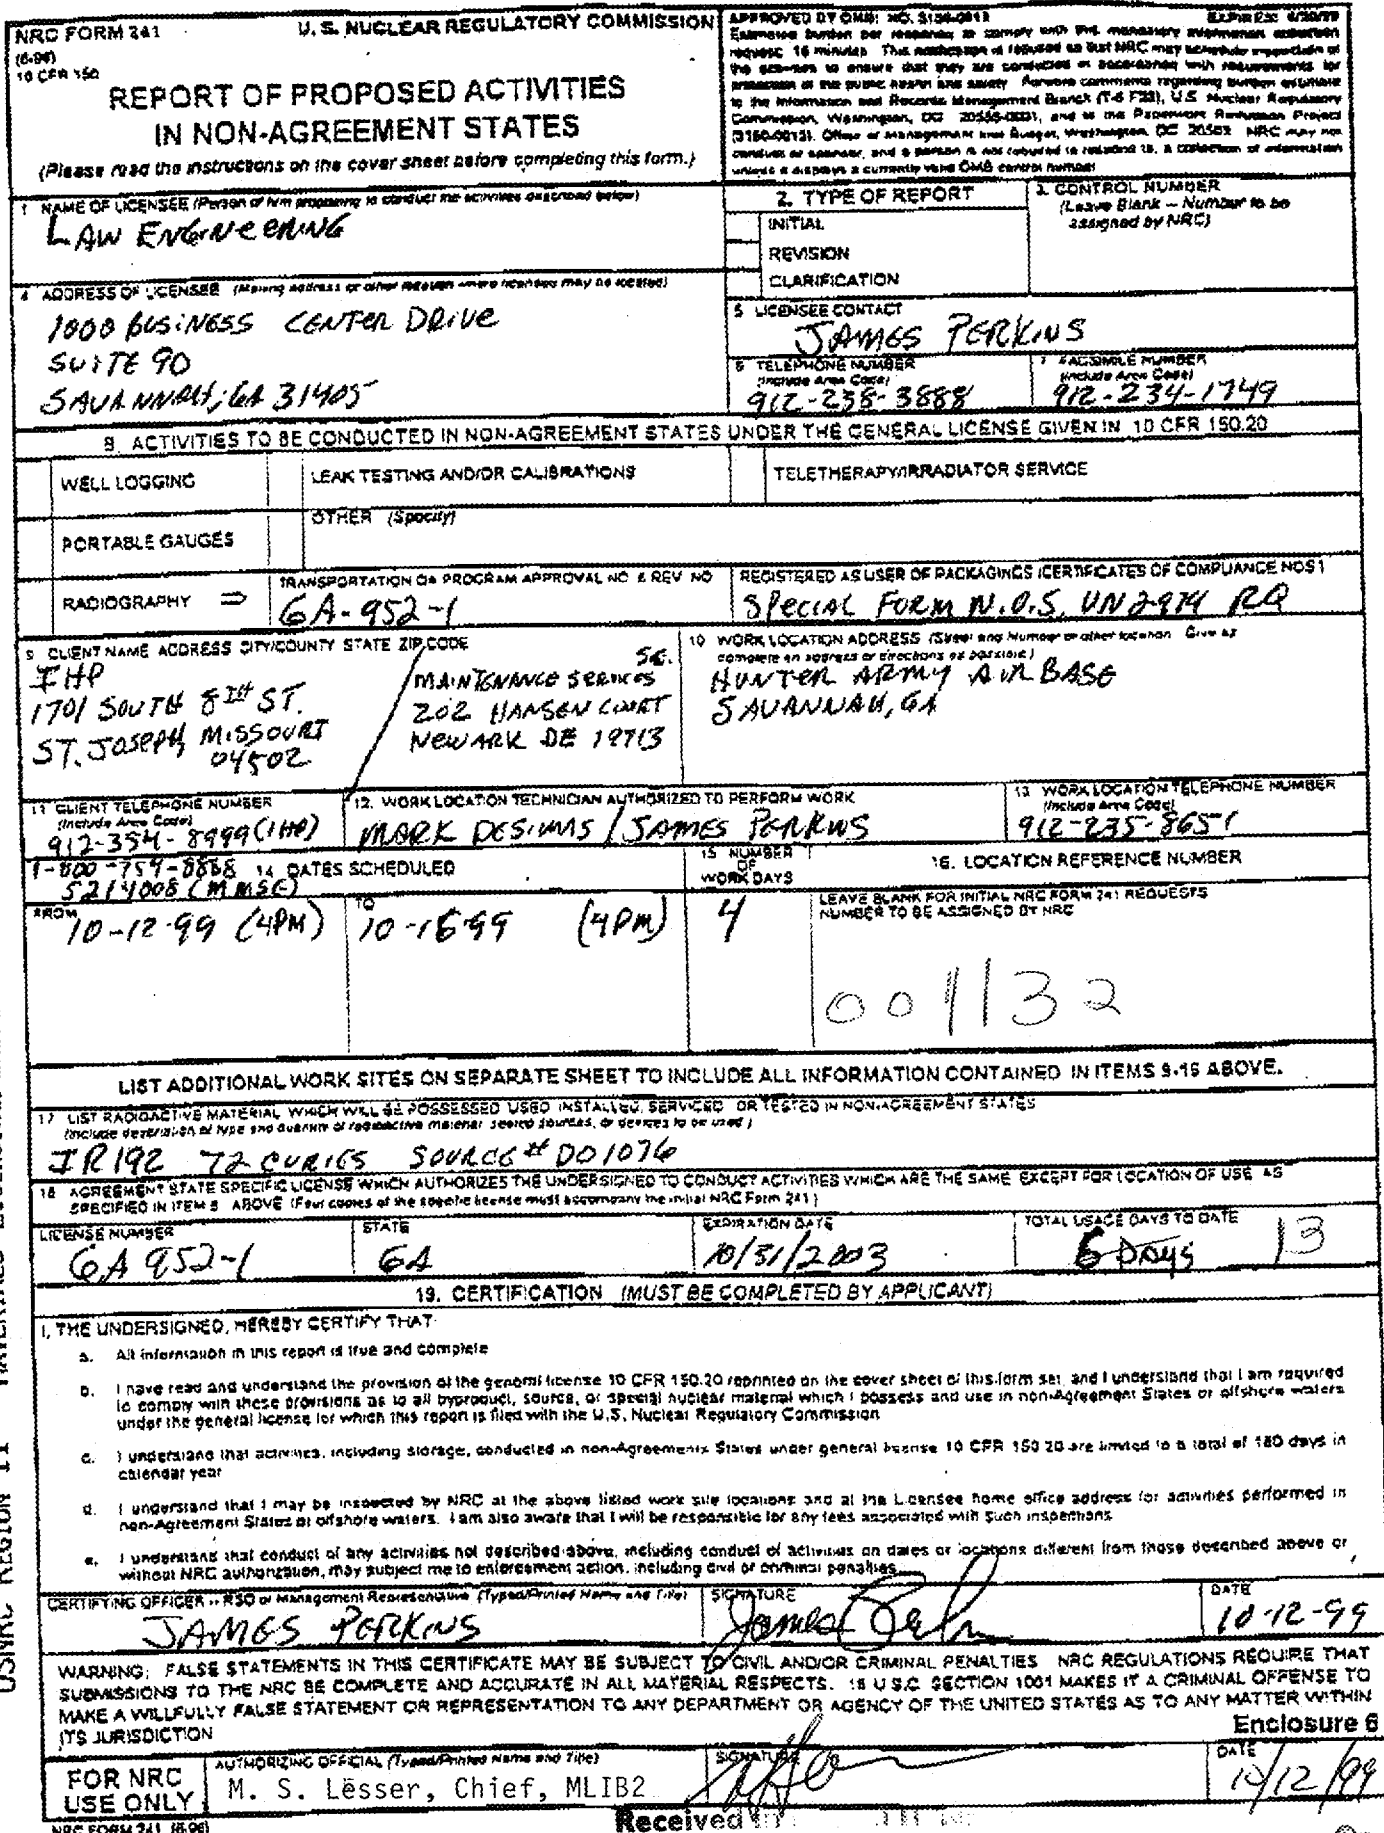 NRC FORM 241
(6-96)
10 CFR 150
U. S. NUCLEAR REGULATORY COMMISSION
REPORT OF PROPOSED ACTIVITIES
IN NON-AGREEMENT STATES
(Please read the instructions on the cover sheet before completing this form.)
APPROVED BY OMB: NO. 3150-0013
EXPIRES: 6/30/99
Estimated burden per response to comply with this mandatory information collection
request: 15 minutes. This notification is required so that NRC may schedule inspection of
the activities to ensure that they are conducted in accordance with requirements for
protection of the public health and safety. Forward comments regarding burden estimate
to the Information and Records Management Branch (T-6 F33), U.S. Nuclear Regulatory
Commission, Washington, DC 20555-0001, and to the Paperwork Reduction Project
(3150-0013), Office of Management and Budget, Washington, DC 20503. NRC may not
conduct or sponsor, and a person is not required to respond to, a collection of information
unless it displays a currently valid OMB control number.
1 NAME OF LICENSEE (Person or firm proposing to conduct the activities described below)
LAW ENGINEERING
2. TYPE OF REPORT
INITIAL
REVISION
CLARIFICATION
3. CONTROL NUMBER
(Leave Blank – Number to be
assigned by NRC)
4 ADDRESS OF LICENSEE (Mailing address or other location where licensee may be located)
1000 BUSINESS CENTER DRIVE
SUITE 90
SAVANNAH, GA 31405
5 LICENSEE CONTACT
JAMES PERKINS
6 TELEPHONE NUMBER
(Include Area Code)
912-238-3888
7 FACSIMILE NUMBER
(Include Area Code)
912-234-1749
8. ACTIVITIES TO BE CONDUCTED IN NON-AGREEMENT STATES UNDER THE GENERAL LICENSE GIVEN IN 10 CFR 150.20
WELL LOGGING
LEAK TESTING AND/OR CALIBRATIONS
TELETHERAPY/IRRADIATOR SERVICE
PORTABLE GAUGES
OTHER (Specify)
RADIOGRAPHY ⇒
TRANSPORTATION QA PROGRAM APPROVAL NO. & REV NO
GA-952-1
REGISTERED AS USER OF PACKAGINGS (CERTIFICATES OF COMPLIANCE NOS)
SPECIAL FORM N.O.S. UN 2974 RQ
9 CLIENT NAME ADDRESS CITY/COUNTY STATE ZIP CODE
IHP
1701 SOUTH 8TH ST.
ST. JOSEPH, MISSOURI
04502
MAINTENANCE SERVICES
202 HANSEN COURT
NEWARK DE 19713
10 WORK LOCATION ADDRESS (Street and Number or other location. Give as
complete an address or directions as possible)
HUNTER ARMY AIR BASE
SAVANNAH, GA
11 CLIENT TELEPHONE NUMBER
(Include Area Code)
912-354-8999 (IHP)
1-800-759-8888
5214008 (MMSE)
12. WORK LOCATION TECHNICIAN AUTHORIZED TO PERFORM WORK
MARK DESIMMS / JAMES PERKINS
13 WORK LOCATION TELEPHONE NUMBER
(Include Area Code)
912-235-8651
14 DATES SCHEDULED
FROM
10-12-99 (4PM)
TO
10-16-99 (4PM)
15 NUMBER
OF
WORK DAYS
4
16. LOCATION REFERENCE NUMBER
LEAVE BLANK FOR INITIAL NRC FORM 241 REQUESTS
NUMBER TO BE ASSIGNED BY NRC
001132
LIST ADDITIONAL WORK SITES ON SEPARATE SHEET TO INCLUDE ALL INFORMATION CONTAINED IN ITEMS 9-16 ABOVE.
17 LIST RADIOACTIVE MATERIAL WHICH WILL BE POSSESSED USED INSTALLED, SERVICED OR TESTED IN NON-AGREEMENT STATES
(Include description of type and quantity of radioactive material sealed sources, or devices to be used)
IR192 72 CURIES SOURCE# DO1076
18 AGREEMENT STATE SPECIFIC LICENSE WHICH AUTHORIZES THE UNDERSIGNED TO CONDUCT ACTIVITIES WHICH ARE THE SAME EXCEPT FOR LOCATION OF USE AS
SPECIFIED IN ITEM 8 ABOVE (Four copies of the specific license must accompany the initial NRC Form 241)
LICENSE NUMBER
GA 952-1
STATE
GA
EXPIRATION DATE
10/31/2003
TOTAL USAGE DAYS TO DATE
6 Days 13
19. CERTIFICATION (MUST BE COMPLETED BY APPLICANT)
I, THE UNDERSIGNED, HEREBY CERTIFY THAT:
a. All information in this report is true and complete
b. I have read and understand the provision of the general license 10 CFR 150.20 reprinted on the cover sheet of this form set, and I understand that I am required
to comply with these provisions as to all byproduct, source, or special nuclear material which I possess and use in non-Agreement States or offshore waters
under the general license for which this report is filed with the U.S. Nuclear Regulatory Commission
c. I understand that activities, including storage, conducted in non-Agreements States under general license 10 CFR 150 20 are limited to a total of 180 days in
calendar year
d. I understand that I may be inspected by NRC at the above listed work site locations and at the Licensee home office address for activities performed in
non-Agreement States or offshore waters. I am also aware that I will be responsible for any fees associated with such inspections
e. I understand that conduct of any activities not described above, including conduct of activities on dates or locations different from those described above or
without NRC authorization, may subject me to enforcement action, including civil or criminal penalties
CERTIFYING OFFICER -- RSO or Management Representative (Typed/Printed Name and Title)
JAMES PERKINS
SIGNATURE
James Perkins
DATE
10-12-99
WARNING: FALSE STATEMENTS IN THIS CERTIFICATE MAY BE SUBJECT TO CIVIL AND/OR CRIMINAL PENALTIES NRC REGULATIONS REQUIRE THAT
SUBMISSIONS TO THE NRC BE COMPLETE AND ACCURATE IN ALL MATERIAL RESPECTS. 18 U S.C. SECTION 1001 MAKES IT A CRIMINAL OFFENSE TO
MAKE A WILLFULLY FALSE STATEMENT OR REPRESENTATION TO ANY DEPARTMENT OR AGENCY OF THE UNITED STATES AS TO ANY MATTER WITHIN
ITS JURISDICTION
Enclosure 6
FOR NRC
USE ONLY
AUTHORIZING OFFICIAL (Typed/Printed Name and Title)
M. S. Lesser, Chief, MLIB2
SIGNATURE
DATE
10/12/99
NRC FORM 241 (6-96)
Received
USNRC REGION II